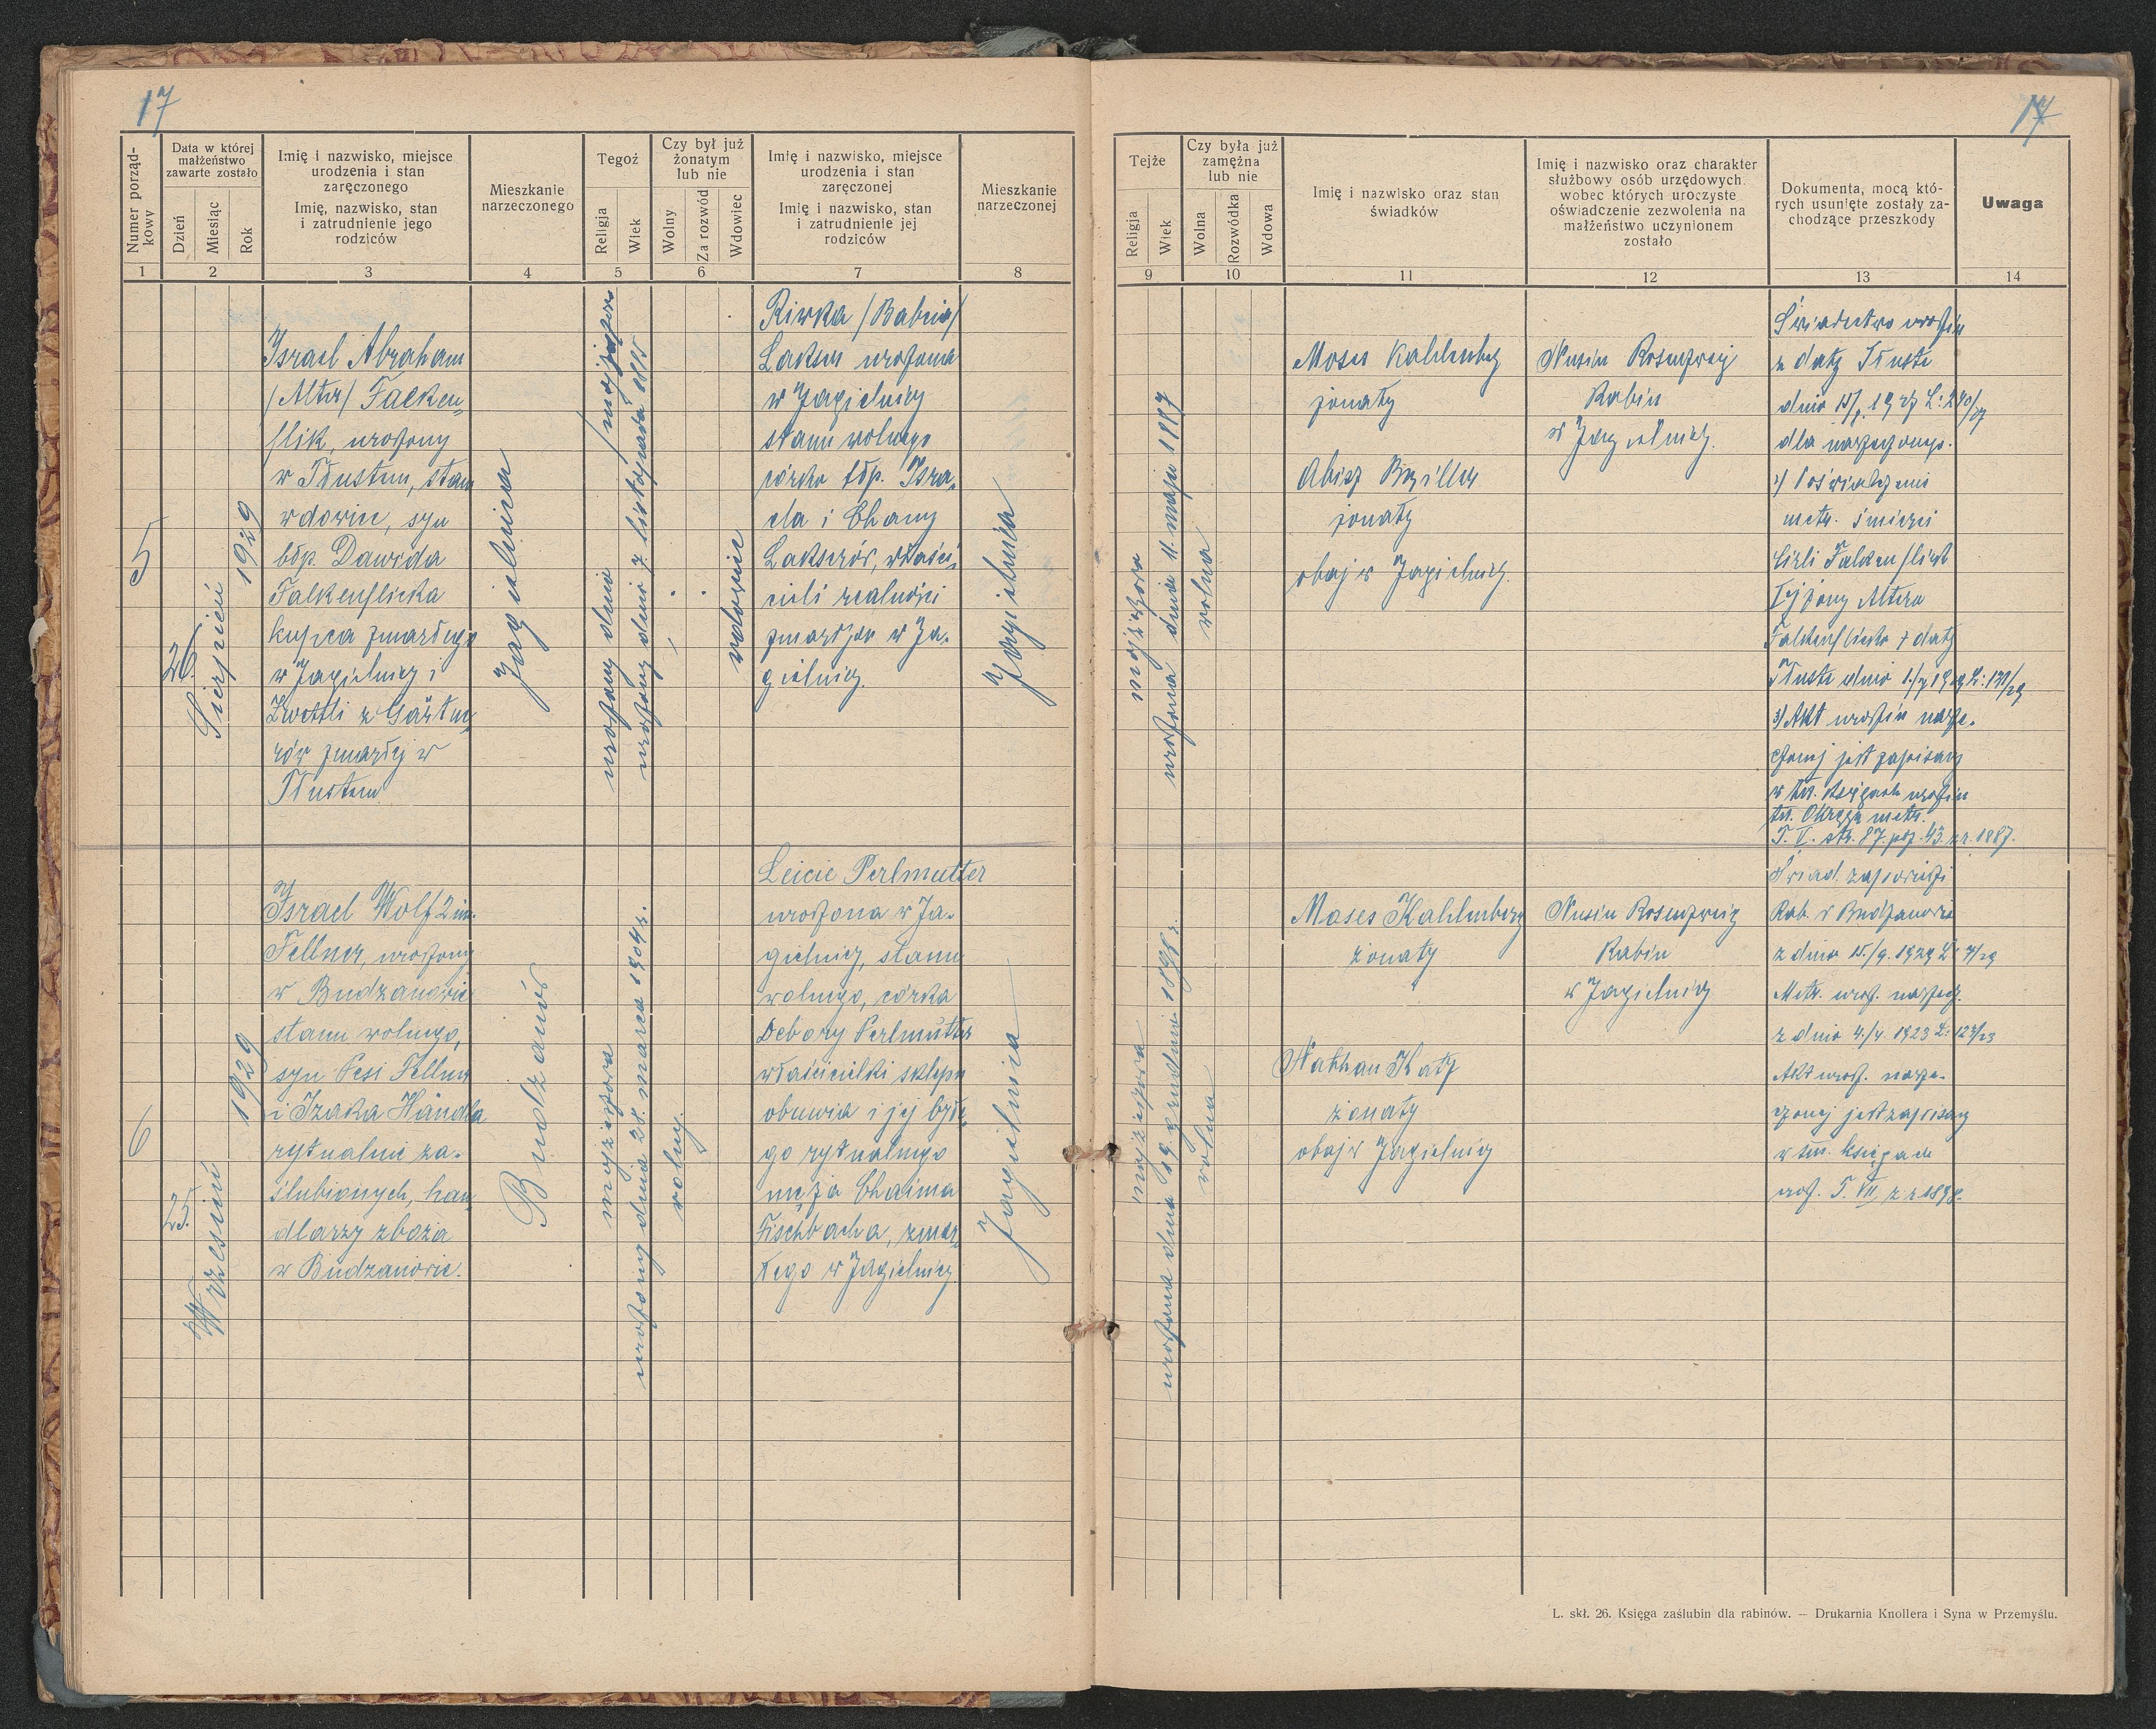 17
17
Numer porząd-
kowy
Data w której
małżeństwo
zawarte zostało
Dzień
Miesiąc
Rok
Imię i nazwisko, miejsce
urodzenia i stan
zaręczonego
Imię, nazwisko, stan
i zatrudnienie jego
rodziców
Mieszkanie
narzeczonego
Tegoż
Religja
Wiek
Czy był już
żonatym
lub nie
Wolny
Za rozwód
Wdowiec
Imię i nazwisko, miejsce
urodzenia i stan
zaręczonej
Imię i nazwisko, stan
i zatrudnienie jej
rodziców
Mieszkanie
narzeczonej
Tejże
Religja
Wiek
Czy była już
zamężna
lub nie
Wolna
Rozwódka
Wdowa
Imię i nazwisko oraz stan
świadków
Imię i nazwisko oraz charakter
służbowy osób urzędowych,
wobec których uroczyste
oświadczenie zezwolenia na
małżeństwo uczynionem
zostało
Dokumenta, mocą któ-
rych usunięte zostały za-
chodzące przeszkody
Uwaga
1 2 3 4 5 6 7 8 9 10 11 12 13 14
5
26.
Sierpień
1929
Israel Abraham
/Alter/ Falken-
flik, urodzony
w Tłustem, stan
wdowiec, syn
błp. Dawida
Falkenflicka
kupca zmarłego
w Jagielnicy i
z Gärtne-
rów zmarłej w
Tłustem
Jagielnica
urodzony dnia 7. listopada
wdowiec
Riwka /Babcia/
urodzona
w Jagielnicy
stanu wolnego
córka błp. Izra-
ela i Chany
właści-
cieli realności
zmarłych w Ja-
gielnicy.
Jagielnica
mojżeszowa
urodzona dnia 11. maja 1887
wolna
Moses Kahlenberg
żonaty
Abisz
żonaty
obaj w Jagielnicy.
Nusin Rosenzweig
Rabin
w Jagielnicy.
Świadectwo urodzin
z daty Tłuste
dla narzeczonego.
2) Poświadczenie
metr. śmierci
Falkenflick
żony Altera
Falkenflicka z daty
Tłuste dnia
3) Akt urodzin narze-
czonej jest zapisany
w tut. księgach urodzin
tut. Okręgu metr.
T. V. str. 87. poz. 43. z r. 1887.
6
25.
Wrzesień
1929
Israel Wolf 2 im.
Fellner, urodzony
w Budzanowie
stanu wolnego,
syn Pesi Fellner
i Izaka Händla
rytualnie za-
ślubionych, han-
dlarzy zboża
w Budzanowie.
Budzanów
mojżeszowa
urodzony dnia 28. marca 1904 r.
wolny
Leicie Perlmutter
urodzona w Ja-
gielnicy, stanu
wolnego, córka
Debory Perlmutter
właścicielki sklepu
obuwia i jej byłe-
go rytualnego
męża Chaima
Fischbacha, zmar-
łego w Jagielnicy.
Jagielnica
mojżeszowa
urodzona dnia 19. grudnia 1898 r.
wolna
Moses Kahlenberg
żonaty
Nathan Katz
żonaty
obaj w Jagielnicy
Nusin Rosenzweig
Rabin
w Jagielnicy
Świad. zapowiedzi
Rab. w Budzanowie
z dnia 15./9. 1929 L: 7/29
Metr. urodz. narzecz.
z dnia 4./4. 1923 L: 123/23
Akt urodz. narze-
czonej jest zapisany
w tut. księgach
urodz. T. VII, z r. 1898.
L. skł. 26. Księga zaślubin dla rabinów. — Drukarnia Knollera i Syna w Przemyślu.